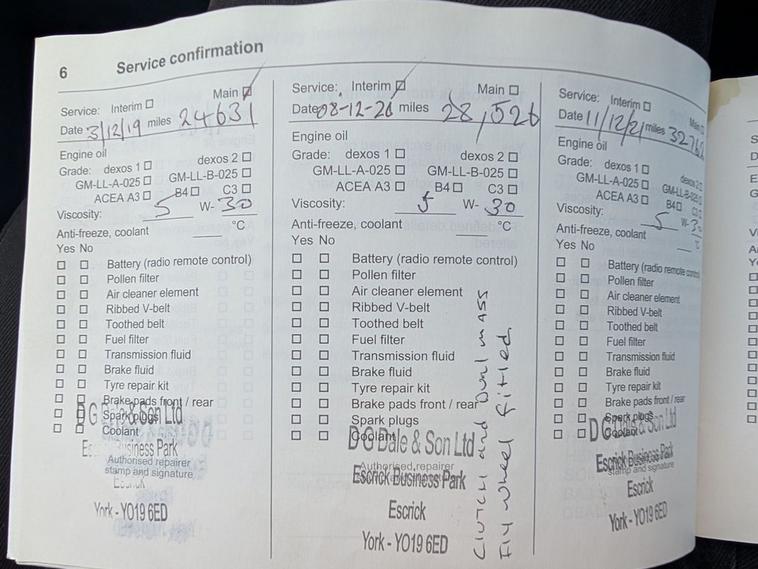 6 Service confirmation
Service: Interim Main
Date 3/12/19 miles 24631
Engine oil
Grade: dexos 1 dexos 2
GM-LL-A-025 GM-LL-B-025
ACEA A3 B4 C3
Viscosity: 5 W- 30
Anti-freeze, coolant °C
Yes No
Battery (radio remote control)
Pollen filter
Air cleaner element
Ribbed V-belt
Toothed belt
Fuel filter
Transmission fluid
Brake fluid
Tyre repair kit
Brake pads front / rear
Spark plugs
Coolant
D G Dale & Son Ltd
Business Park
Authorised repairer
stamp and signature
York - YO19 6ED
Service: Interim Main
Date 08-12-20 miles 28,526
Engine oil
Grade: dexos 1 dexos 2
GM-LL-A-025 GM-LL-B-025
ACEA A3 B4 C3
Viscosity: 5 W- 30
Anti-freeze, coolant °C
Yes No
Battery (radio remote control)
Pollen filter
Air cleaner element
Ribbed V-belt
Toothed belt
Fuel filter
Transmission fluid
Brake fluid
Tyre repair kit
Brake pads front / rear
Spark plugs
Coolant
D G Dale & Son Ltd
Authorised repairer
Escrick Business Park
Escrick
York - YO19 6ED
CLUTCH and Dual mASS
Fly wheel fitted
Service: Interim Main
Date 11/12/21 miles
Engine oil
Grade: dexos 1 dexos 2
GM-LL-A-025 GM-LL-B-025
ACEA A3 B4
Viscosity: 5 W-
Anti-freeze, coolant
Yes No
Battery (radio remote control)
Pollen filter
Air cleaner element
Ribbed V-belt
Toothed belt
Fuel filter
Transmission fluid
Brake fluid
Tyre repair kit
Brake pads front / rear
Spark plugs
Coolant
D G Dale & Son Ltd
Escrick Business Park
stamp and signature
Escrick
York - YO19 6ED